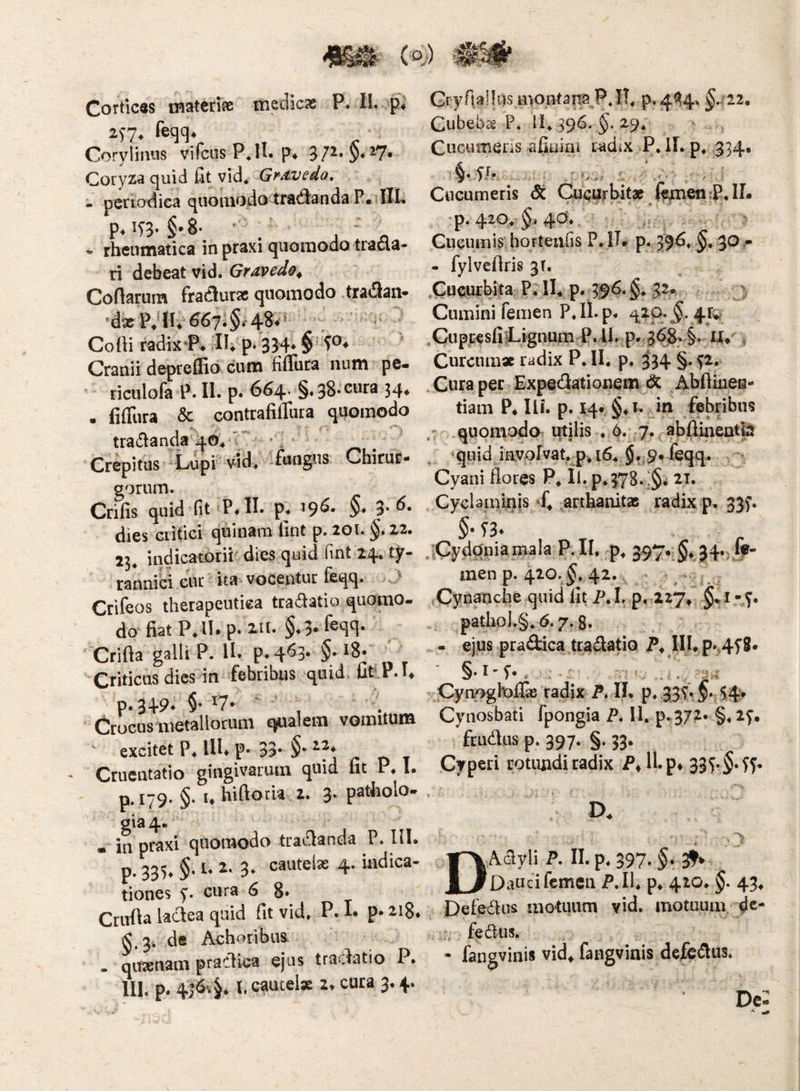 (o)
Cortices materiæ medicæ P. II. p.
257. seqq.
Corylinus viscus P. II. p. 372. §. 27.
Coryza quid sit vid. Gravedo.
- periodica quomodo tractanda P. III.
p. 153. §. 8.
- rheumatica in praxi quomodo tracta-
ri debeat vid. Gravedo.
Costarum fracturæ quomodo tractan-
dæ P. II. 667. §. 48.
Costi radix P. II. p. 334. § 50.
Cranii depressio cum fissura num pe-
riculosa P. II. p. 664. §. 38. cura 34.
- fissura & contrafissura quomodo
tractanda 40.
Crepitus Lupi vid. fungus Chirur-
gorum.
Crisis quid sit P. II. p. 196. §. 3. 6.
dies critici quinam sint p. 201. §. 22.
23. indicatorii dies quid sint 24. ty-
rannici cur ita vocentur seqq.
Criseos therapeutica tractatio quomo-
do fiat P. II. p. 211. §. 3. seqq.
Crista galli P. II. p. 463. §. 18.
Criticus dies in febribus quid sit P. I.
p. 349. §. 17.
Crocus metallorum qualem vomitum
excitet P. III. p. 33. §. 22.
Cruentatio gingivarum quid sit P. I.
p. 179. §. 1. historia 2. 3. patholo-
gia 4.
- in praxi quomodo tractanda P. III.
p. 335. §. 1. 2. 3. cautelæ 4. indica-
tiones 5. cura 6 8.
Crusta lactea quid sit vid. P. I. p. 218.
§. 3. de Achoribus
- quænam practica ejus tractatio P.
III. p. 436. §. 1. cautelæ 2. cura 3. 4.
Crystallus montana P. II. p. 494. §. 22.
Cubebæ P. II. 396. §. 29.
Cucumeris asinini radix P. II. p. 334.
§. 51.
Cucumeris & Cucurbitæ semen P. II.
p. 420. §. 40.
Cucumis hortensis P. II. p. 396. §. 30 -
- sylvestris 31.
Cucurbita P. II. p. 396. §. 32.
Cumini semen P. II. p. 420. §. 41.
Cupressi Lignum P. II. p. 368. §. 11.
Curcumæ radix P. II. p. 334 §. 52.
Cura per Expectationem & Abstinen-
tiam P. III. p. 14. §. 1. in febribus
quomodo utilis . 6. 7. abstinentia
quid involvat. p. 16. §. 9. seqq.
Cyani flores P. II. p. 378. §. 21.
Cyclaminis f. arthanitæ radix p. 335.
§. 53.
Cydonia mala P. II. p. 397. §. 34. se-
men p. 420. §. 42.
Cynanche quid sit P. I. p. 227. §. 1 - 5.
pathol. §. 6. 7. 8.
- ejus practica tractatio P. III. p. 458.
§. 1 - 5.
Cynoglossæ radix P. II. p. 335. §. 54.
Cynosbati spongia P. II. p. 372. §. 25.
fructus p. 397. §. 33.
Cyperi rotundi radix P. II. p. 335. §. 55.
D.
DActyli P. II. p. 397. §. 35.
Dauci semen P. II. p. 420. §. 43.
Defectus motuum vid. motuum de-
fectus.
- sangvinis vid. sangvinis defectus.
De-